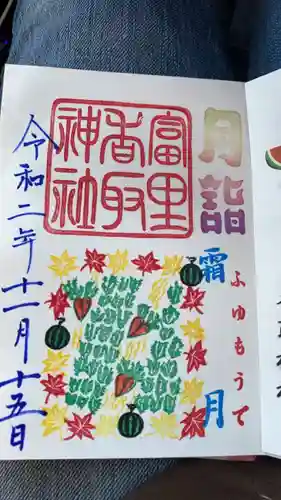 月詣
ふゆもうで
霜月
富里
香取
神社
令和二年十一月十五日